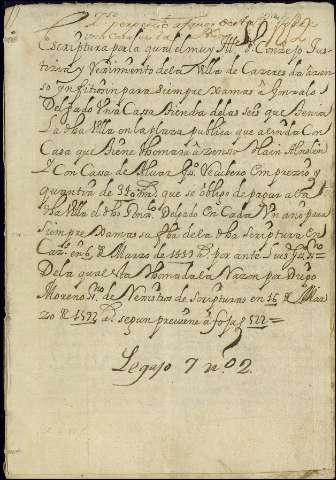 Escriptura por la qual el muy Ill.e Sr. Conzejo Jus
ticia y Regimiento dela Villa de Cazeres da a zen
so Infitiosin para siempre xamas a Gonzalo
Delgado Una Cassa tienda delas seis que tienia
la dha Villa en la plaza publica que alinda Con
Casa que tiene thomada a zensso
y Con Casa de Alvar Gs. Reubero Con prezio y
quantia de 320 mrs. que se obligo de pagar a la
dha Villa el dho Gonz. Delgado En Cada Un año para
siempre xamas su fha dela dha Scriptura En
Caz. en 6 de Marzo de 1533 as. por ante Luis
Dela qual esta thomada la Razon por Diego
Moreno no. de Rexistros de Scripturas en 16 de Mar
zo de 1533 as. segun previene a fojas 522
Legajo 7 no. 02.